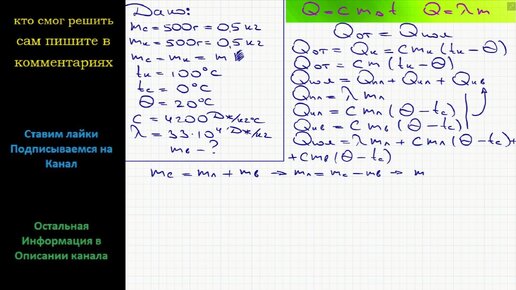 кто смог решить
сам пишите в
комментариях
Ставим лайки
Подписываемся на
Канал
Остальная
Информация в
Описании канала
Дано:
mс = 500г = 0,5 кг
mк = 500г = 0,5 кг
mс = mк = m
tк = 100°C
tс = 0°C
Θ = 20°C
c = 4200 Дж/кг°C
λ = 33·10⁴ Дж/кг
mв - ?
Q = cmΔt Q = λm
Qот = Qпол
Qот = Qк = cmк(tк - Θ)
Qот = cm(tк - Θ)
Qпол = Qпл + Qнл + Qнв
Qпл = λmл
Qнл = cmл(Θ - tс)
Qнв = cmв(Θ - tс)
Qпол = λmл + cmл(Θ - tс) +
+ cmв(Θ - tс)
mс = mл + mв → mл = mс - mв → m